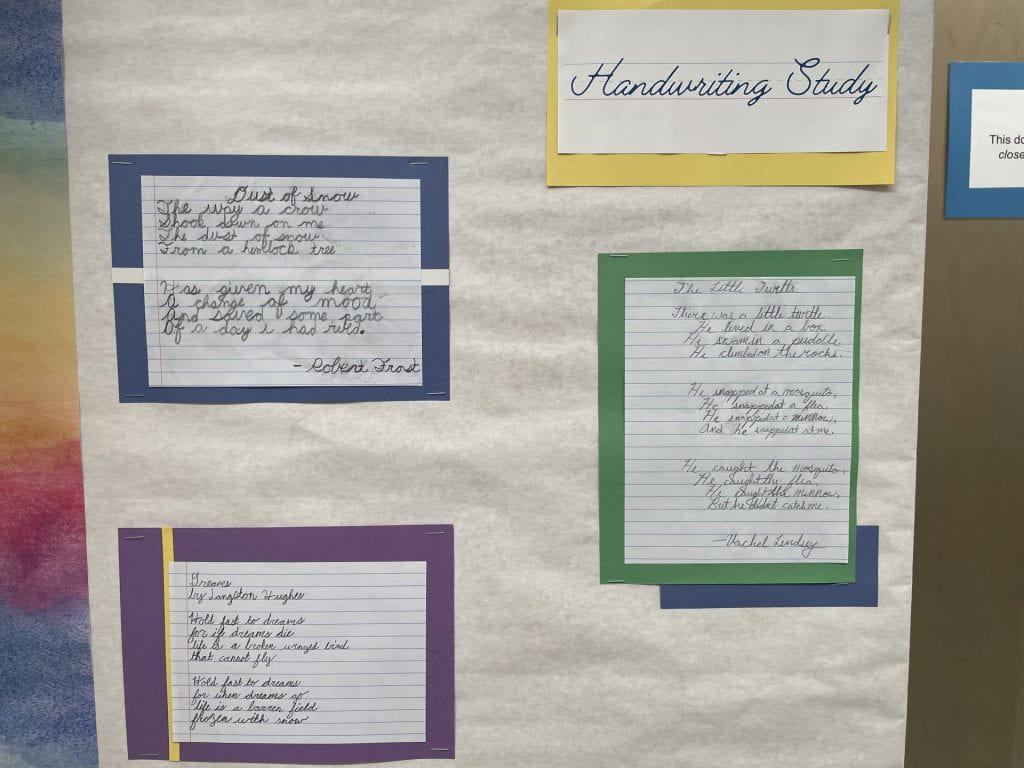 Handwriting Study
This do
close
Dust of Snow
The way a crow
Shook down on me
The dust of snow
From a hemlock tree
Has given my heart
A change of mood
And saved some part
Of a day i had rued.
- Robert Frost
The Little Turtle
There was a little turtle.
He lived in a box.
He swam in a puddle.
He climbed on the rocks.
He snapped at a mosquito,
He snapped at a flea.
He snapped at a minnow,
And he snapped at me.
He caught the mosquito,
He caught the flea.
He caught the minnow,
But he didn't catch me.
-Vachel Lindsey
Dreams
by Langston Hughes
Hold fast to dreams
for if dreams die
life is a broken winged bird
that cannot fly
Hold fast to dreams
for when dreams go
life is a barren field
frozen with snow